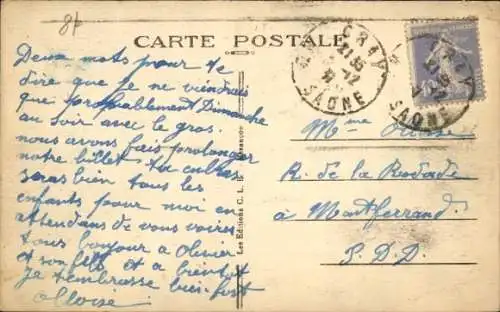 8f
CARTE POSTALE
GRAY
SAONE
Deux mots pour te
dire que je ne viendrais
que probablement Dimanche
au soir avec le gros.
nous avons fais prolonger
notre billet. tu
seras bien tous les
enfants pour moi en
attendans de vous voires
tous bonjour a Olivier
et son fils et a bientôt
Je t'embrasse bien fort
Les Editions C. L. B. Besançon
Mme
R. de la Rodade
à Montferrand.
P.D.D.